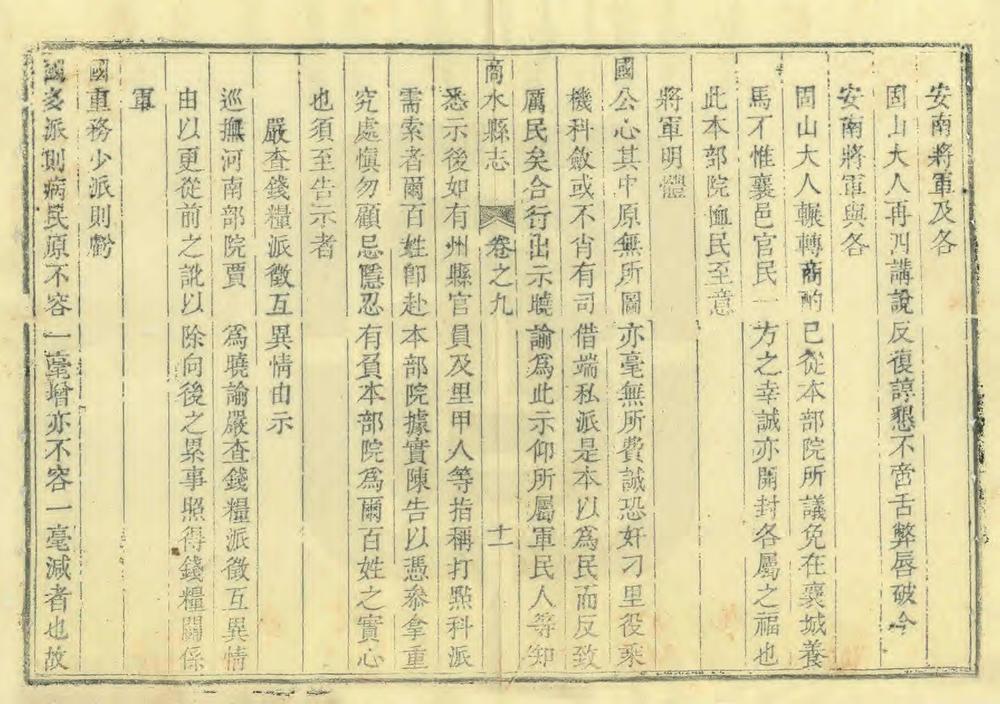 安南將軍及各
固山大人再四講說反復諄懇不啻舌弊唇破今
安南將軍與各
固山大人輾轉商酌已從本部院所議免在襄城養
馬不惟襄邑官民一方之幸誠亦開封各屬之福也
此本部院恤民至意
將軍明體
國公心其中原無所圖亦毫無所費誠恐奸刁里役乘
機科斂或不肖有司借端私派是本以為民而反致
厲民矣合行出示曉諭為此示仰所屬軍民人等知
商水縣志 卷之九 十一
悉示後如有州縣官員及里甲人等指稱打點科派
需索者爾百姓卽赴本部院據實陳告以憑叅拿重
究處愼勿顧忌隱忍有負本部院為爾百姓之實心
也須至告示者
嚴查錢糧派徵互異情由示
巡撫河南部院賈 為曉諭嚴查錢糧派徵互異情
由以更從前之訛以除向後之累事照得錢糧關係
軍
國重務少派則虧
國多派則病民原不容一毫增亦不容一毫減者也故